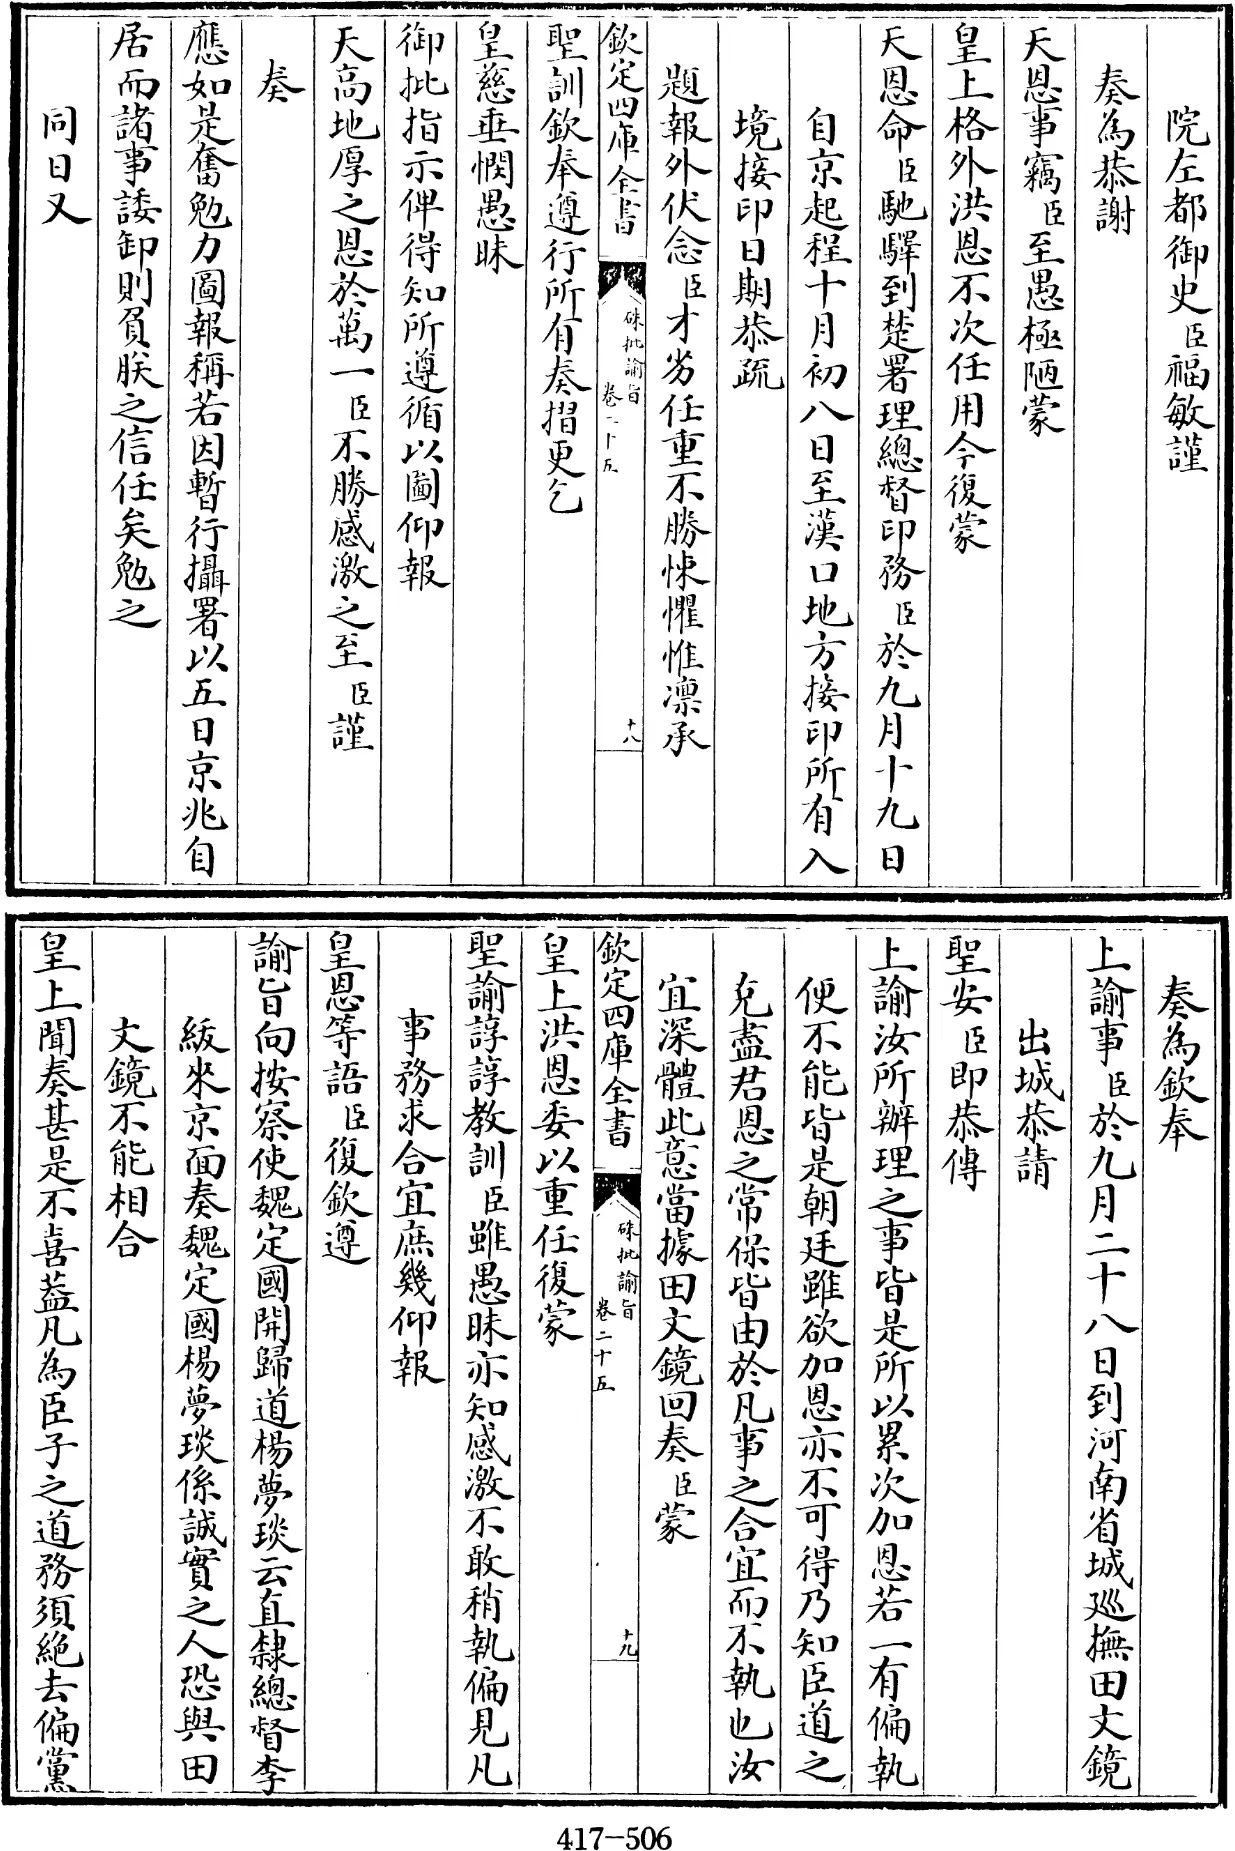 院左都御史臣福敏謹
奏為恭謝
天恩事竊臣至愚極陋蒙
皇上格外洪恩不次任用今復蒙
天恩命臣馳驛到楚署理總督印務臣於九月十九日
自京起程十月初八日至漢口地方接印所有入
境接印日期恭疏
題報外伏念臣才劣任重不勝悚懼惟凛承
欽定四庫全書
硃批諭旨
卷二十五
十八
聖訓欽奉遵行所有奏摺更乞
皇慈垂憫愚昧
御批指示俾得知所遵循以圖仰報
天高地厚之恩於萬一臣不勝感激之至臣謹
奏
應如是奮勉力圖報稱若因暫行攝署以五日京兆自
居而諸事諉卸則負朕之信任矣勉之
同日又
奏為欽奉
上諭事臣於九月二十八日到河南省城廵撫田文鏡
出城恭請
聖安臣即恭傳
上諭汝所辦理之事皆是所以累次加恩若一有偏執
便不能皆是朝廷雖欲加恩亦不可得乃知臣道之
克盡君恩之常保皆由於凡事之合宜而不執也汝
宜深體此意當據田文鏡回奏臣蒙
欽定四庫全書
硃批諭旨
卷二十五
十九
皇上洪恩委以重任復蒙
聖諭諄諄教訓臣雖愚昧亦知感激不敢稍執偏見凡
事務求合宜庶幾仰報
皇恩等語臣復欽遵
諭旨向按察使魏定國開歸道楊夢琰云直隸總督李
紱來京面奏魏定國楊夢琰係誠實之人恐與田
文鏡不能相合
皇上聞奏甚是不喜葢凡為臣子之道務須絶去偏黨
417-506